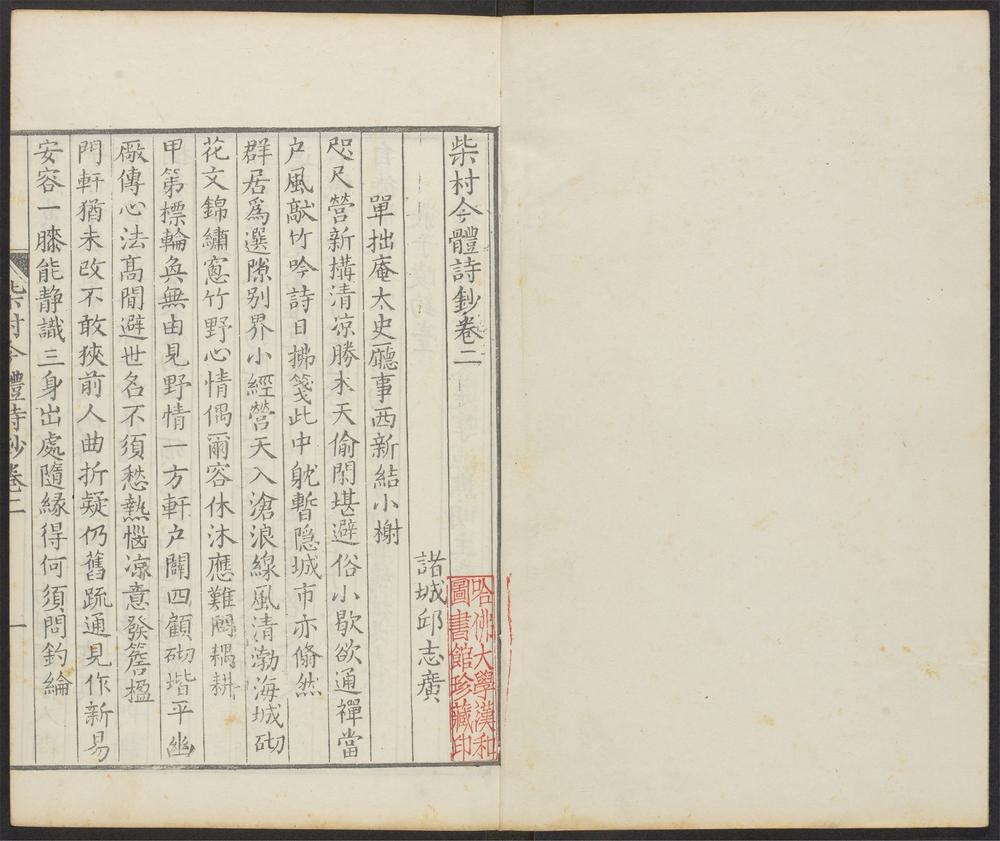 柴村今體詩鈔卷二
諸城邱志廣
單拙庵太史廳事西新結小榭
咫尺營新搆清凉勝木天偷閑堪避俗小歇欲通禪當
户風敲竹吟詩日拂箋此中躭暫隐城市亦翛然
群居爲選隙别界小經營天入滄浪線風清渤海城砌
花文錦繡窓竹野心情偶爾容休沐應難問耦耕
甲第標輪奐無由見野情一方軒户闢四顧砌堦平幽
厰傳心法髙閒避世名不須愁熱惱凉意發簷楹
門軒猶未改不敢狹前人曲折疑仍舊疏通見作新易
安容一膝能静識三身出處隨緣得何須問釣綸
柴村今體詩鈔卷二
一
哈佛大學漢和
圖書館珍藏印